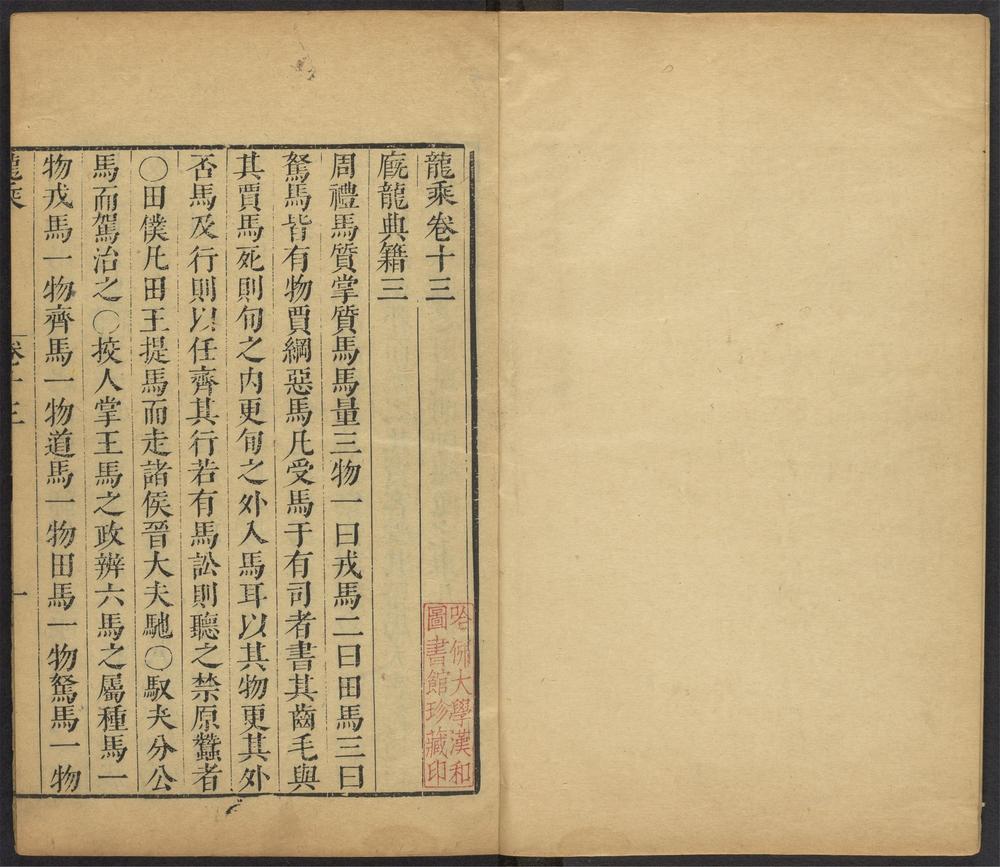 龍乘卷十三
廐龍典籍三
周禮馬質掌質馬馬量三物一曰戎馬二曰田馬三曰
駑馬皆有物賈綱惡馬凡受馬于有司者書其齒毛與
其賈馬死則旬之内更旬之外入馬耳以其物更其外
否馬及行則以任齊其行若有馬訟則聽之禁原蠶者
〇田僕凡田王提馬而走諸侯晉大夫馳〇馭夫分公
馬而駕治之〇挍人掌王馬之政辨六馬之屬種馬一
物戎馬一物齊馬一物道馬一物田馬一物駑馬一物
龍乘
卷十三
一
哈佛大學漢和
圖書館珍藏印